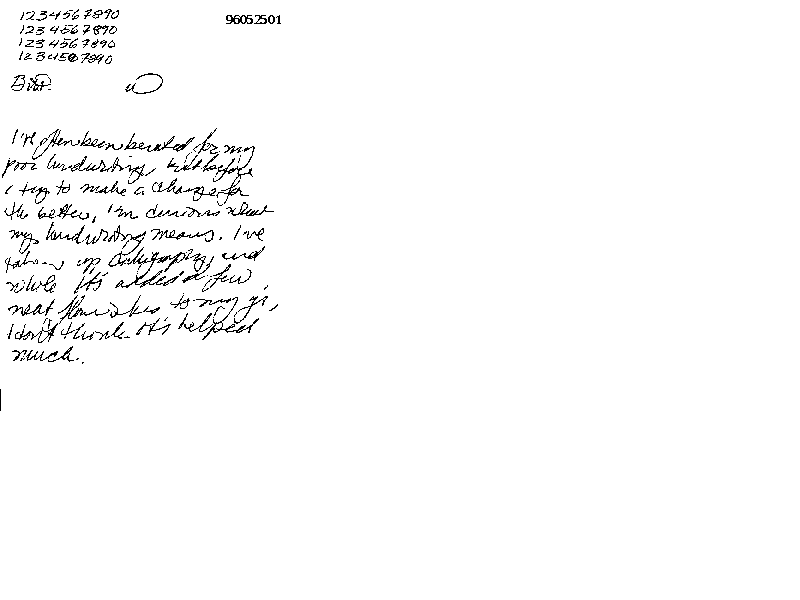 1234567890
96052501
1234567890
1234567890
1234567890
I've often been berated for my
poor handwriting, but before
I try to make a change for
the better, I'm curious what
my handwriting means. I've
taken up calligraphy, and
while it's added a few
neat flourishes to my g's,
I don't think it's helped
much.